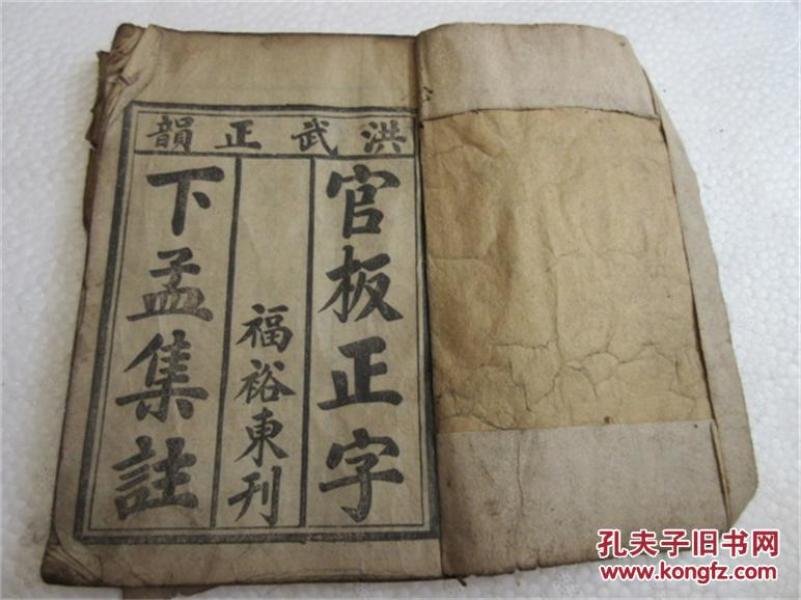 洪武正韻
官板正字
福裕東刊
下孟集註
孔夫子旧书网
www.kongfz.com